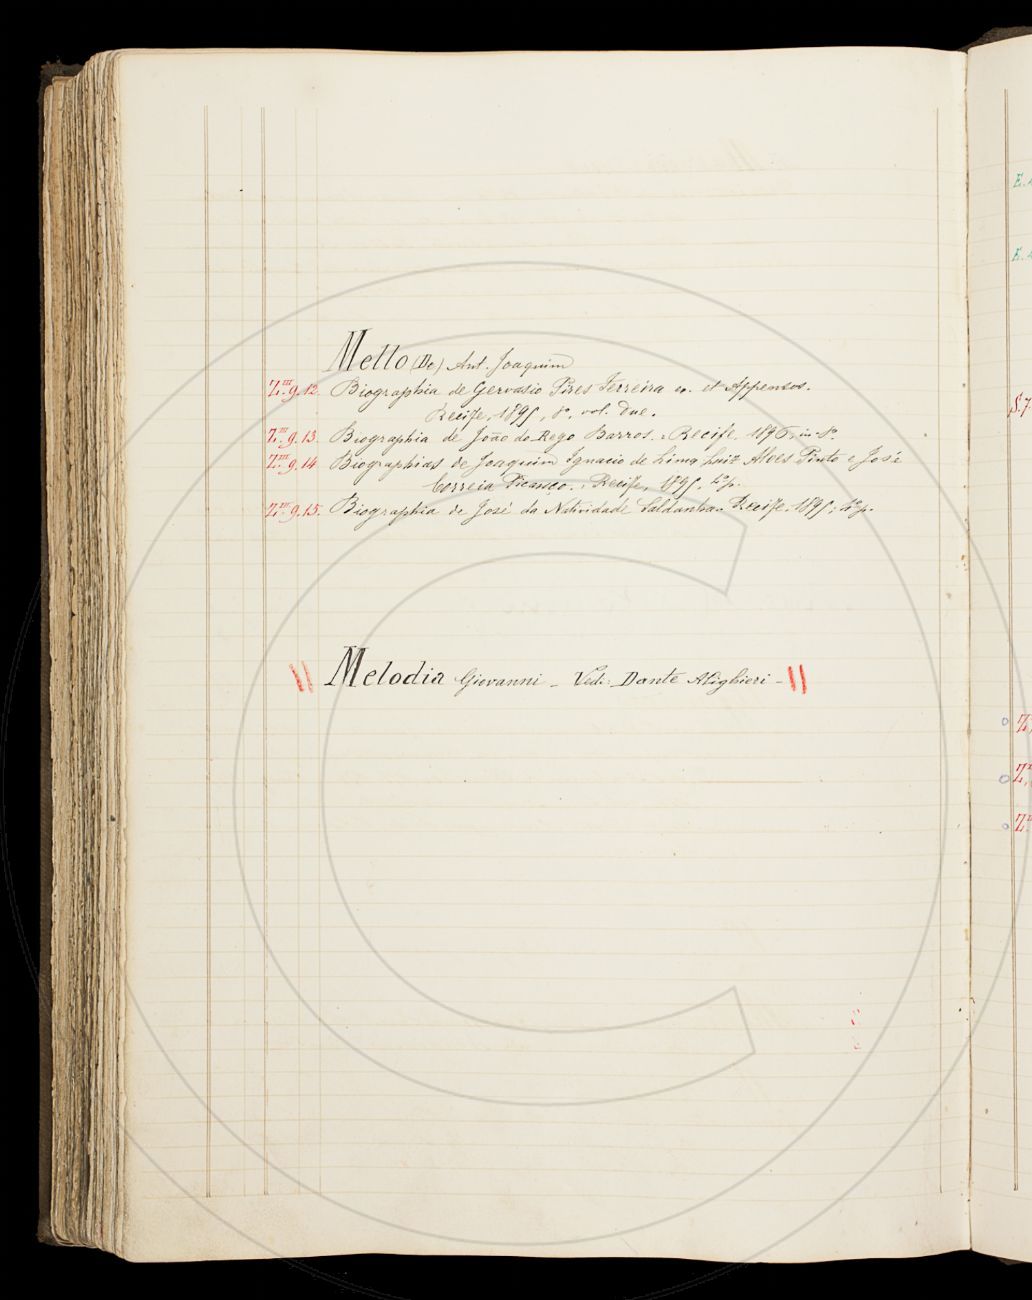 Mello (De) Ant. Joaquim
Z.III g. 12. Biographia de Gervasio Pires Ferreira et Appensos.
Recife, 1895, 8°, vol. due.
Z.III g. 13. Biographia de João do Rego Barros. Recife. 1896, in-8°.
Z.III g. 14 Biographias de Joaquim Ignacio de Lima, Luiz Alves Pinto e José
Correia Picanço. Recife, 1895.
Z.III g. 15. Biographia de José da Natividade Saldanha. Recife. 1895;
Melodia Giovanni _ Vedi: Dante Alighieri -